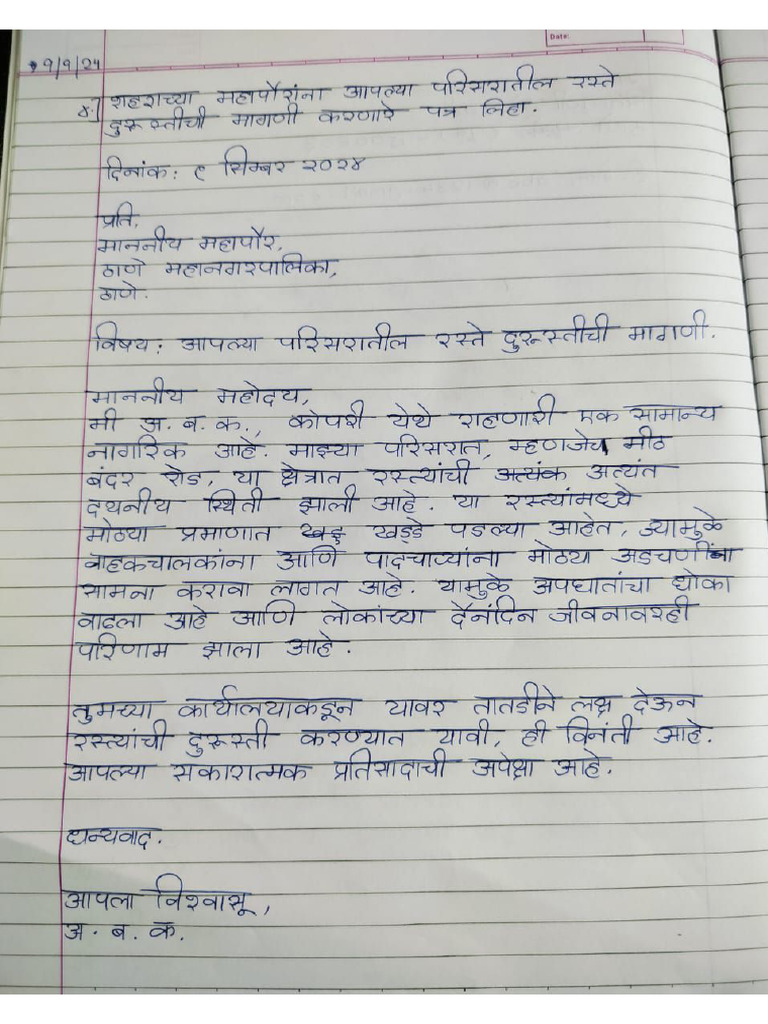 Date:
९/९/२४
४.] शहराच्या महापौरांना आपल्या परिसरातील रस्ते
दुरूस्तीची मागणी करणारे पत्र लिहा.
दिनांक: ९ सिम्बर २०२४
प्रति,
माननीय महापौर,
ठाणे महानगरपालिका,
ठाणे.
विषय: आपल्या परिसरातील रस्ते दुरूस्तीची मागणी.
माननीय महोदय,
मी अ. ब. क., कोपरी येथे राहणारी एक सामान्य
नागरिक आहे. माझ्या परिसरात, म्हणजेच मीठ
बंदर रोड, या क्षेत्रात रस्त्यांची अत्यंत
दयनीय स्थिती झाली आहे. या रस्त्यांमध्ये
मोठ्या प्रमाणात खड्डे पडल्या आहेत, ज्यामुळे
वाहकचालकांना आणि पादचाऱ्यांना मोठ्या अडचणींचा
सामना करावा लागत आहे. यामुळे अपघातांचा धोका
वाढला आहे आणि लोकांच्या दैनंदिन जीवनावरही
परिणाम झाला आहे.
तुमच्या कार्यालयाकडून यावर तातडीने लक्ष देऊन
रस्त्यांची दुरूस्ती करण्यात यावी, ही विनंती आहे.
आपल्या सकारात्मक प्रतिसादाची अपेक्षा आहे.
धन्यवाद.
आपला विश्वासू,
अ. ब. क.